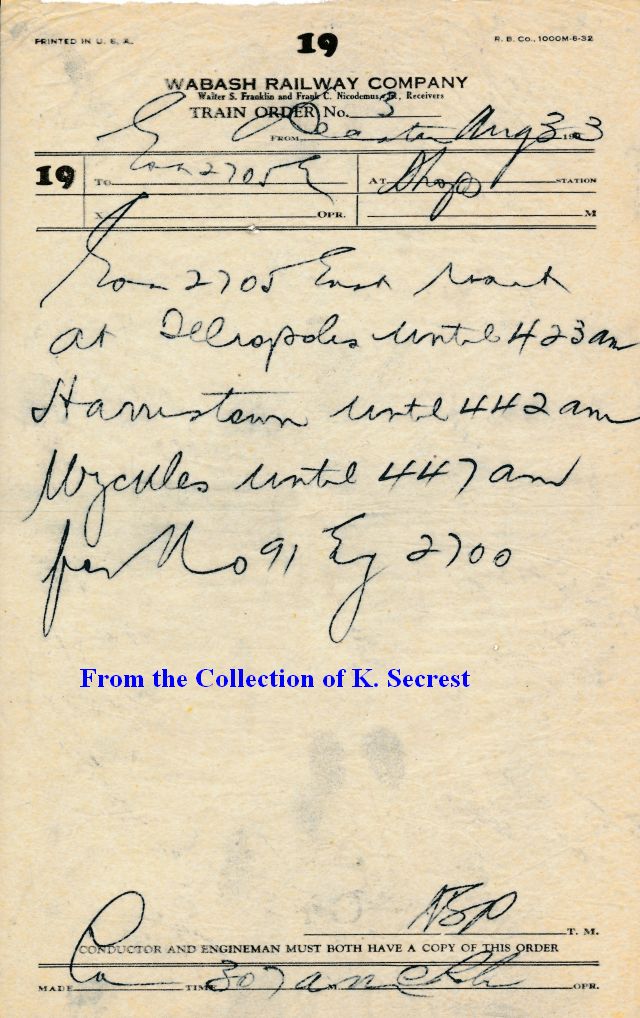 PRINTED IN U. S. A.
19
R. B. Co., 1000M-6-32
WABASH RAILWAY COMPANY
Walter S. Franklin and Frank C. Nicodemus, Jr., Receivers
TRAIN ORDER No. 3
FROM Decatur Aug 3 1933
19 To Eng 2705 E AT Shops STATION
X OPR. M
Eng 2705 East wait
at Illiopolis until 423 am
Harristown until 442 am
Wyckles until 447 am
for No 91 Eng 2700
From the Collection of K. Secrest
T. M.
CONDUCTOR AND ENGINEMAN MUST BOTH HAVE A COPY OF THIS ORDER
MADE TIME 307 a M OPR.